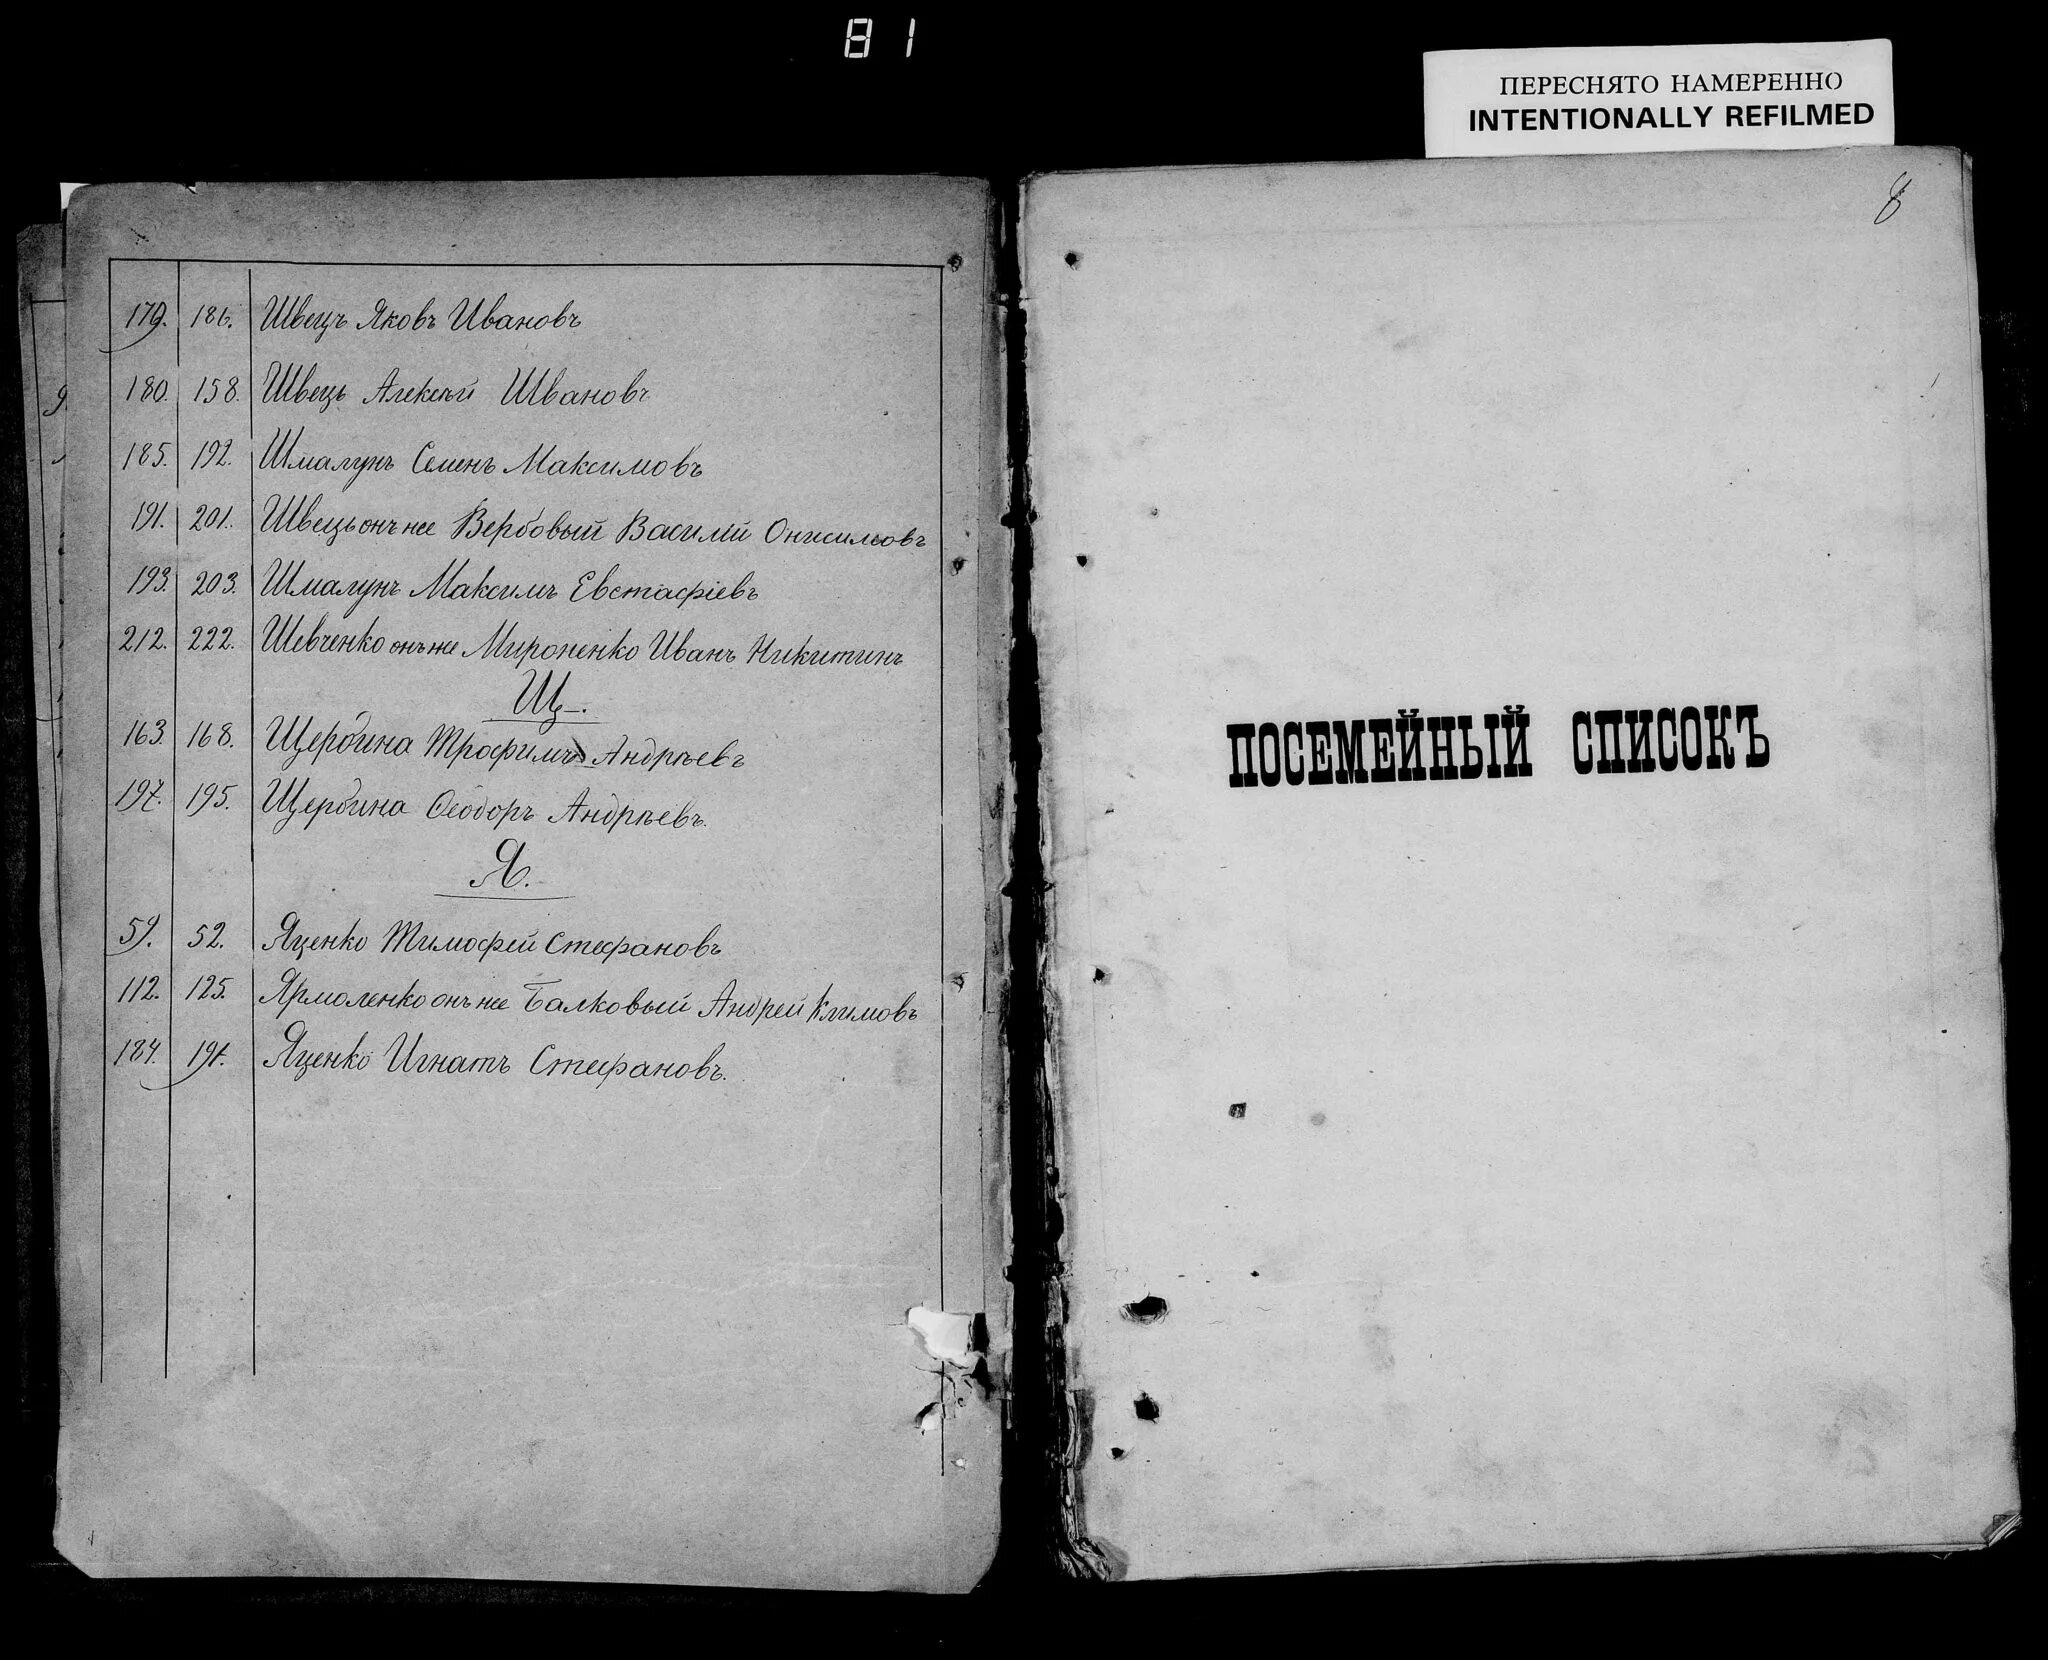 81
ПЕРЕСНЯТО НАМЕРЕННО
INTENTIONALLY REFILMED
179. 186. Швецъ Яковъ Ивановъ
180. 158. Швецъ Алексѣй Ивановъ
185. 192. Шмалунъ Семенъ Максимовъ
191. 201. Швецъ онъ же Вербовый Василий Онисимовъ
193. 203. Шмалунъ Максимъ Евстафіевъ
212. 222. Шевченко онъ же Мироненко Иванъ Никитинъ
Щ.
163. 168. Щербина Трофимъ Андрѣевъ
197. 195. Щербина Ѳеодоръ Андрѣевъ.
Я.
59. 52. Яценко Тимофей Стефановъ
112. 125. Ярмоленко онъ же Балковый Андрей Климовъ
184. 191. Яценко Игнатъ Стефановъ.
8
ПОСЕМЕЙНЫЙ СПИСОКЪ